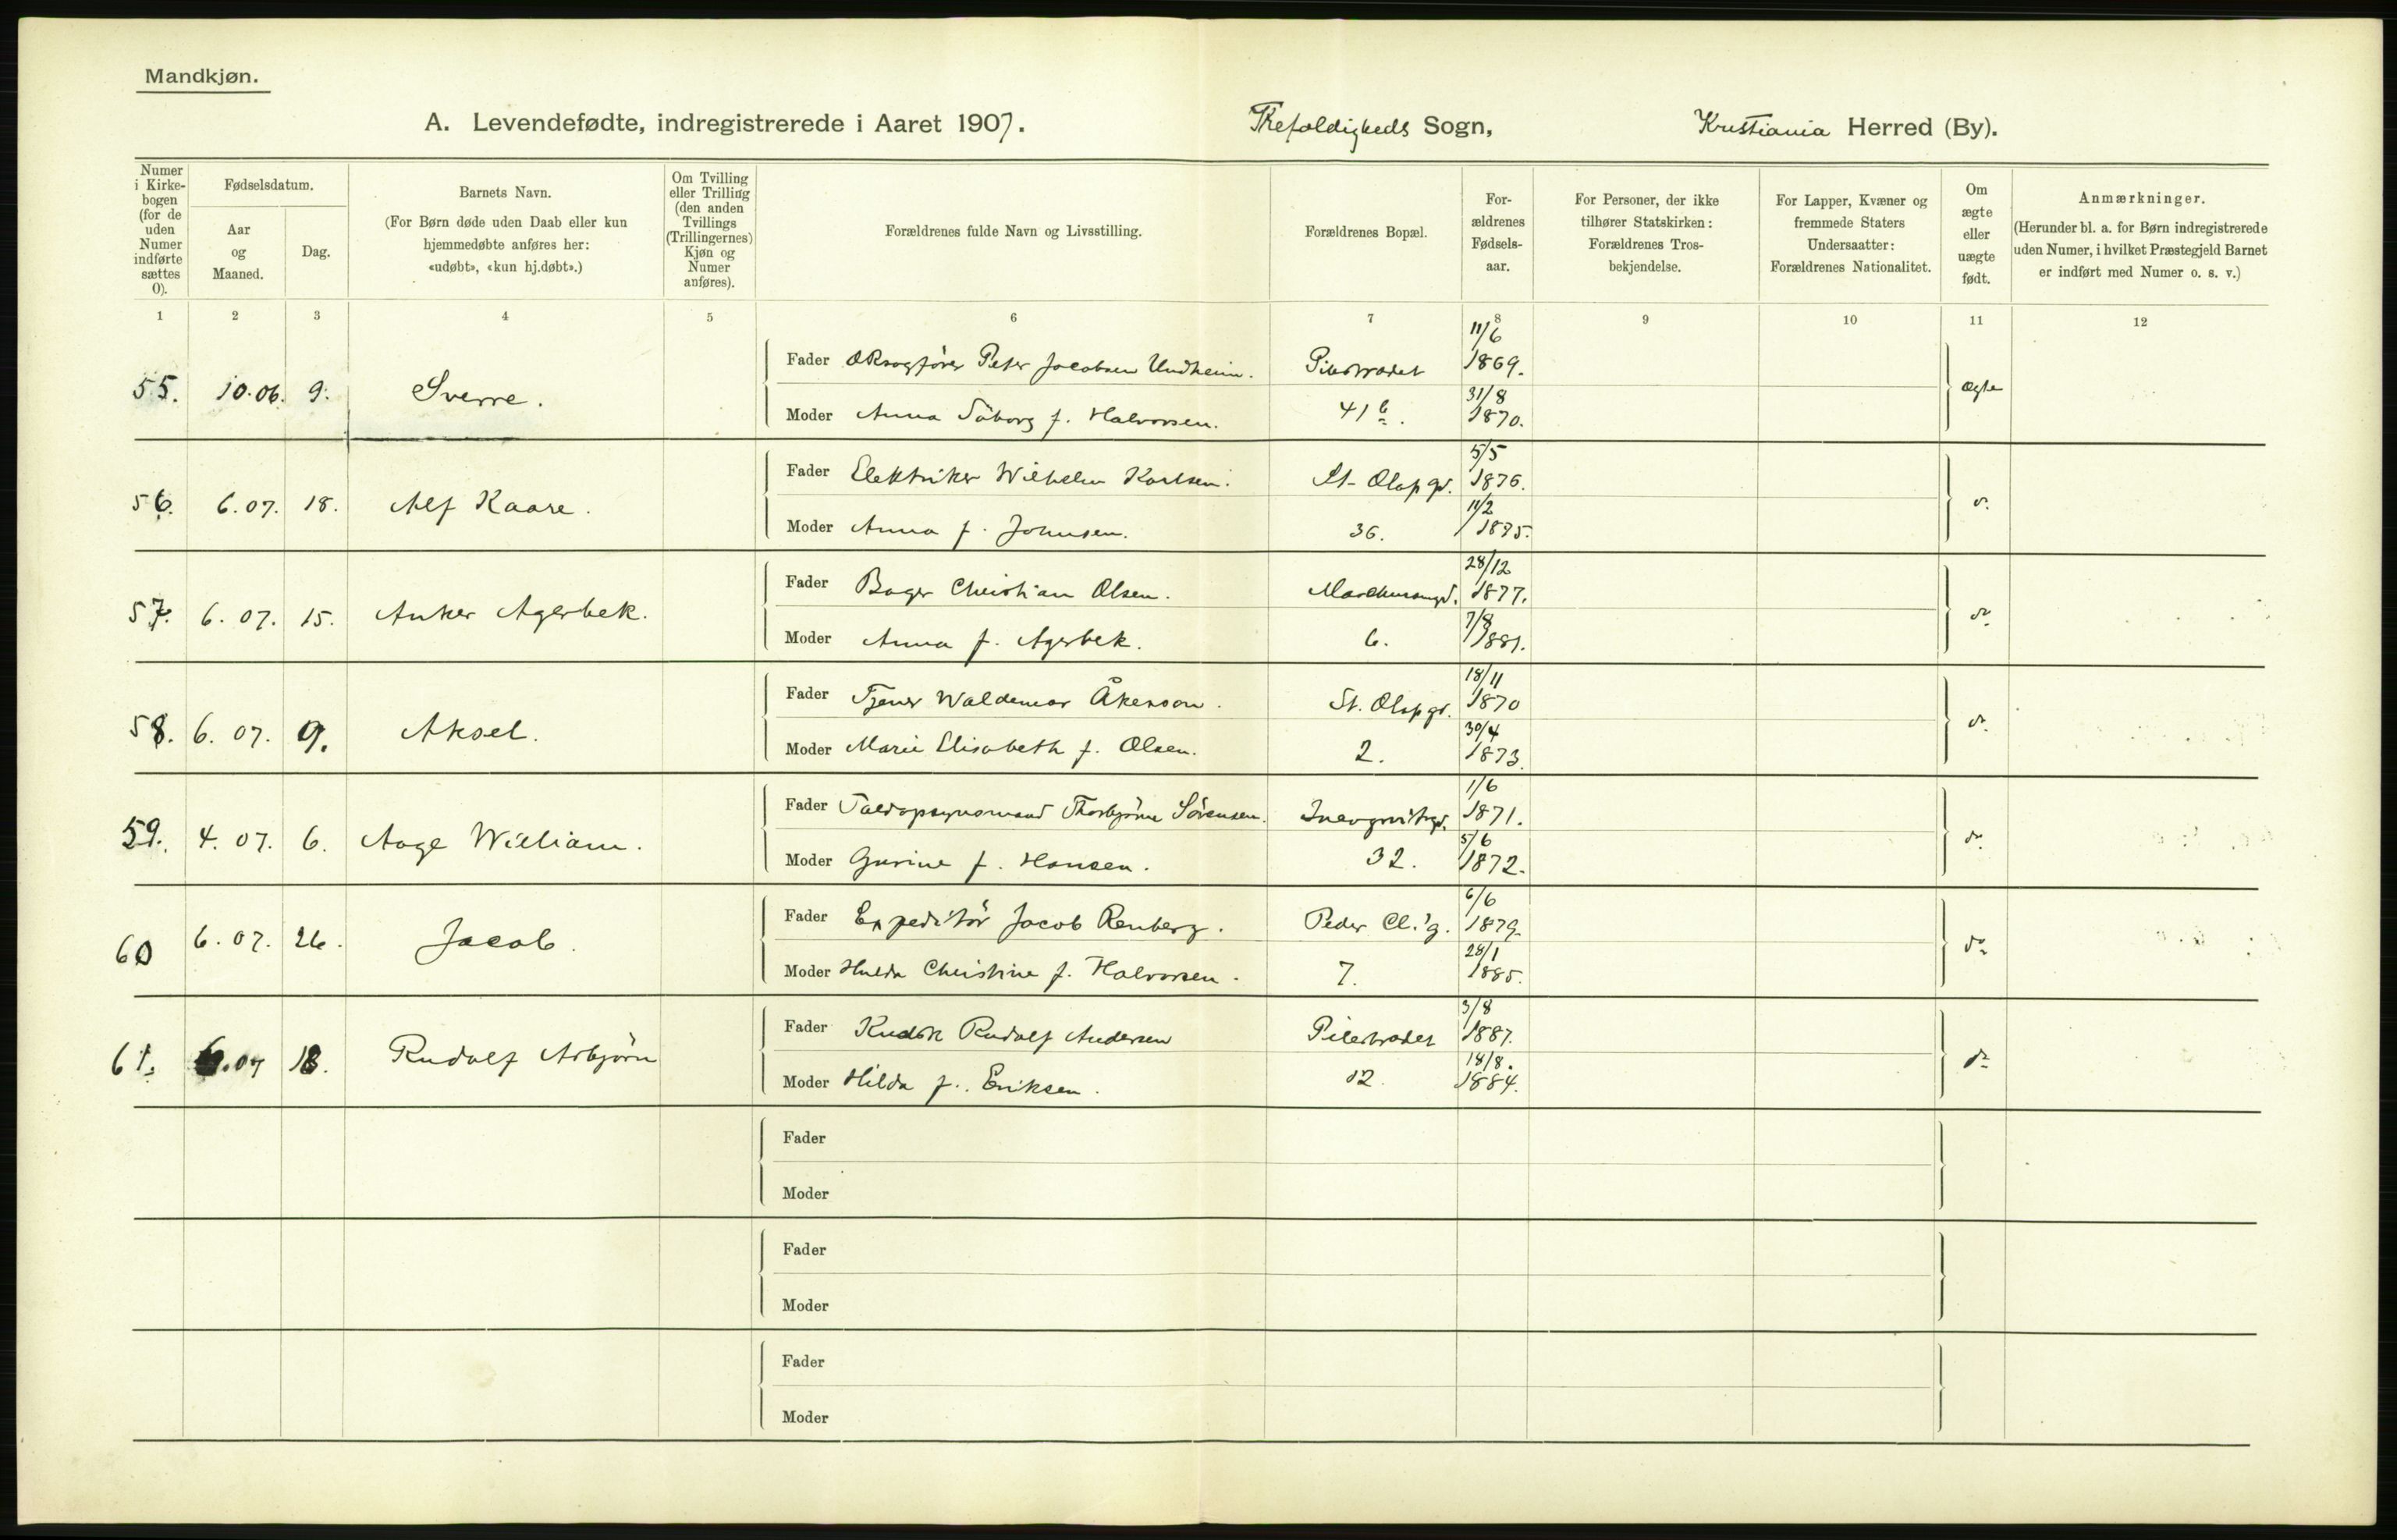 Mandkjøn.
A. Levendefødte, indregistrerede i Aaret 1907. Trefoldigheds Sogn, Kristiania Herred (By).
Numer i Kirkebogen (for de uden Numer indførte sættes 0).
Fødselsdatum.
Aar og Maaned.
Dag.
Barnets Navn.
(For Børn døde uden Daab eller kun hjemmedøbte anføres her: «udøbt», «kun hj.døbt».)
Om Tvilling eller Trilling (den anden Tvillings (Trillingernes) Kjøn og Numer anføres).
Forældrenes fulde Navn og Livsstilling.
Forældrenes Bopæl.
Forældrenes Fødselsaar.
For Personer, der ikke tilhører Statskirken: Forældrenes Trosbekjendelse.
For Lapper, Kvæner og fremmede Staters Undersaatter: Forældrenes Nationalitet.
Om ægte eller uægte født.
Anmærkninger.
(Herunder bl. a. for Børn indregistrerede uden Numer, i hvilket Præstegjeld Barnet er indført med Numer o. s. v.)
1 2 3 4 5 6 7 8 9 10 11 12
55. 10.06. 9. Sverre.
Fader ORsagfører Peter Jacobsen Undheim. Pilestrædet 11/6 1869. ægte
Moder Anna Söborg f. Halvorsen. 41 b. 31/8 1870.
56. 6.07. 18. Alf Kaare.
Fader Elektriker Wilhelm Karlsen. St. Olafsgd. 5/5 1876. do
Moder Anna f. Johnsen. 36. 11/2 1875.
57. 6.07. 15. Anker Agerbek.
Fader Bager Christian Olsen. 28/12 1877. do
Moder Anna f. Agerbek. 6. 7/8 1881.
58. 6.07. 9. Aksel.
Fader Tjener Waldemar Åkerson. St. Olafsgd. 18/11 1870 do
Moder Marie Elisabeth f. Olsen. 2. 30/4 1873.
59. 4.07. 6. Aage William.
Fader Toldopsynsmand Thorbjørn Sörensen. 1/6 1871. do
Moder Gurine f. Hansen. 32. 5/6 1872.
60 6.07. 26. Jacob.
Fader Expeditör Jacob Renberg. Peder Cl. g. 6/6 1879. do
Moder Hulda Christine f. Halvorsen. 7. 28/1 1885.
61. 6.07 18. Rudolf Asbjörn
Fader Kudsk Rudolf Andersen Pilestrædet 3/8 1887. do
Moder Hilda f. Eriksen. 12. 18/8. 1884.
Fader
Moder
Fader
Moder
Fader
Moder